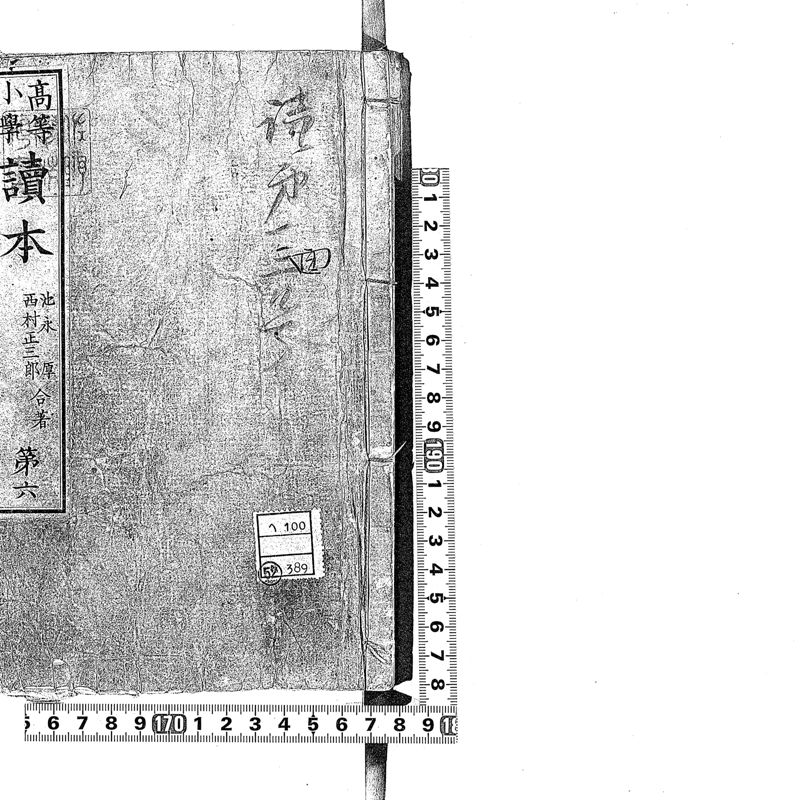 高等
小學
讀本
池永厚
西村正三郎
合著
第六
四
ヘ 100
59 389
0 1 2 3 4 5 6 7 8 9 190 1 2 3 4 5 6 7 8
5 6 7 8 9 170 1 2 3 4 5 6 7 8 9